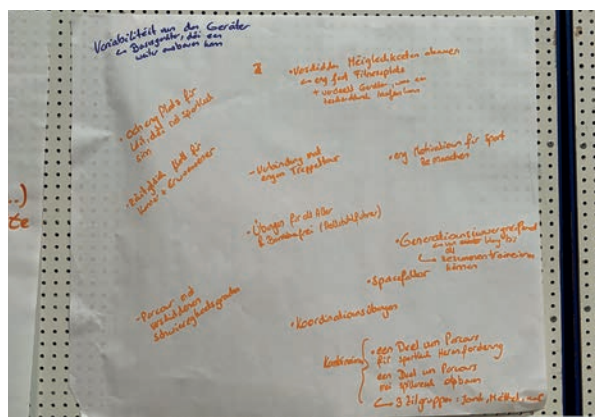 Variabilitéit vun den Geräter
Basisgeräter, déi een
weider ausbauen kann
Verschidden Méiglechkeeten
eng fest Fitnessplaz
+ Geräter, wou een
kann
Och eng Plaz fir
Leit, déi net sportlech
sinn
Plaz fir
Kanner + Erwuessener
- Verbindung mat
engem Treppelwee
• eng Motivatioun fir Sport
ze maachen
• Übungen für all Alter
& Barrierefrei (Rollstuhlfahrer)
• Generatiounsiwwergräifend
al
zesummen trainéieren
können
• Spaassfaktor
• Parcour mat
verschiddenen
Schwieregkeetsgraden
• Koordinationsübungen
Kombinéieren
• een Deel vum Parcours
fir sportlech Herausforderung
een Deel vum Parcours
méi spilleresch opbauen
3 Zilgruppen: Jonk, Mëttel,
...)